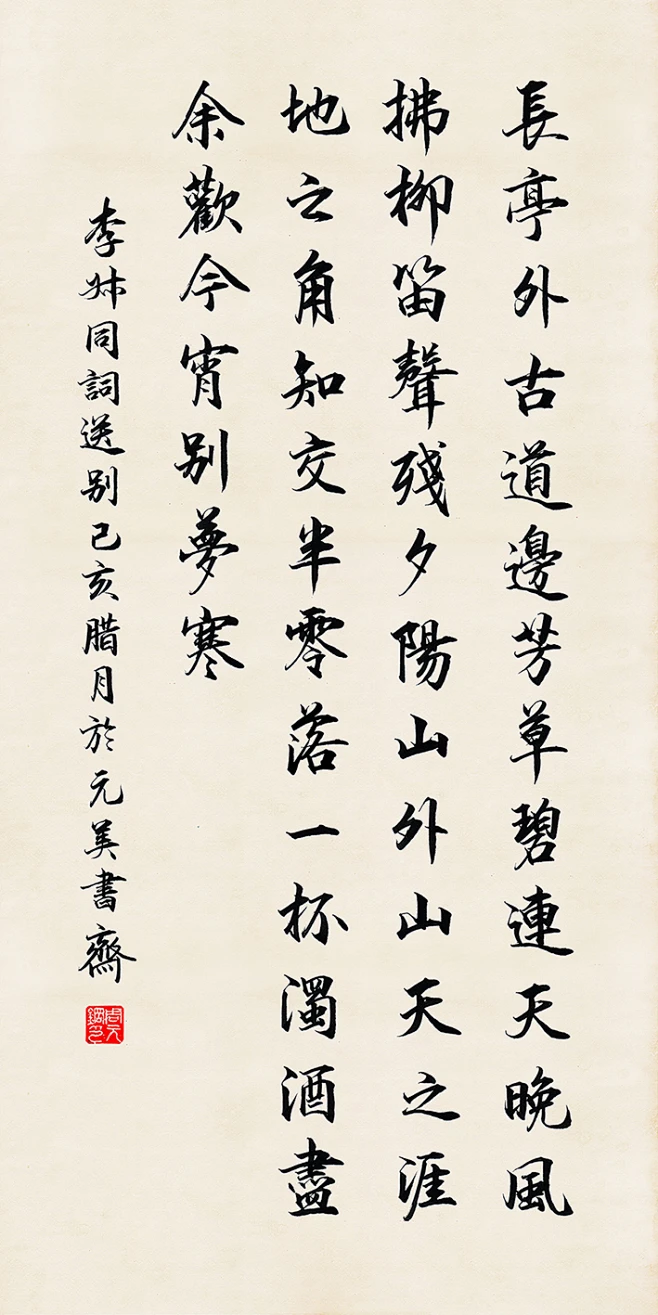 長亭外古道邊芳草碧連天晚風
拂柳笛聲殘夕陽山外山天之涯
地之角知交半零落一杯濁酒盡
余歡今宵别夢寒
李叔同詞送别己亥腊月於元美書齋